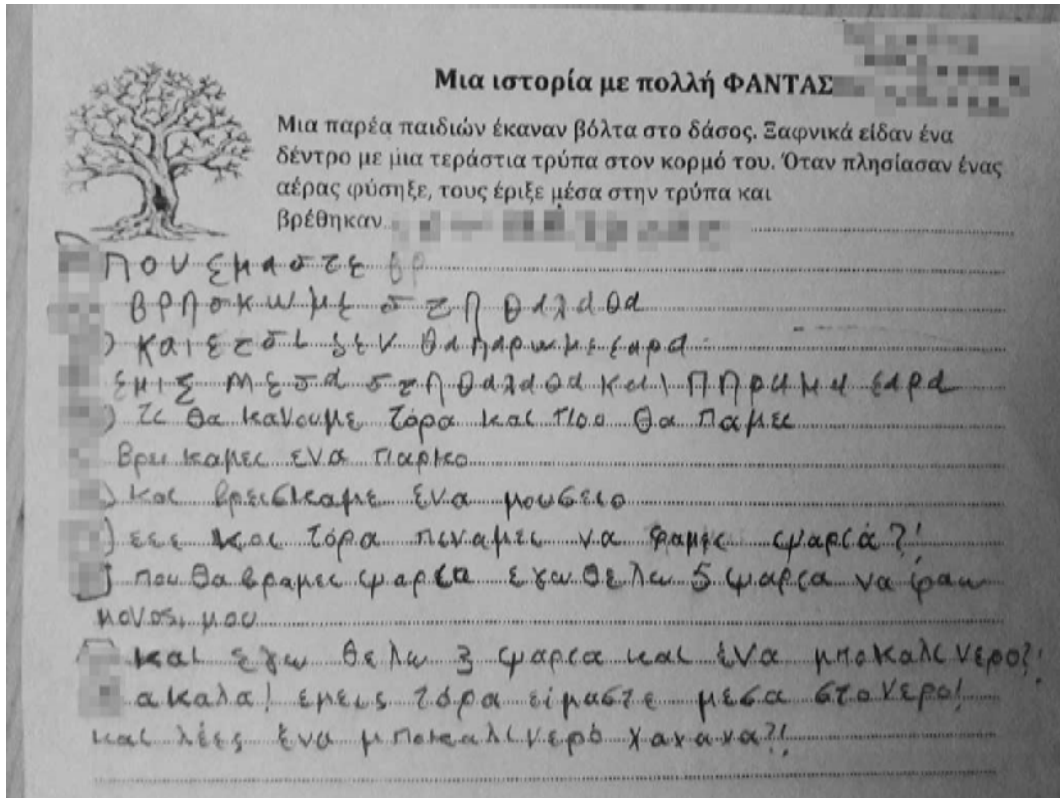 Μια ιστορία με πολλή ΦΑΝΤΑΣ
Μια παρέα παιδιών έκαναν βόλτα στο δάσος. Ξαφνικά είδαν ένα
δέντρο με μια τεράστια τρύπα στον κορμό του. Όταν πλησίασαν ένας
αέρας φύσηξε, τους έριξε μέσα στην τρύπα και
βρέθηκαν
που εμαστε βρ
βρησκωμε στη θαλαθα
) και ετσι δεν θα παρωμε εαρα
εμις μεσα στη θαλαθα και πηραμη εαρα
) τι θα κανουμε τόρα και πού θα παμες
βρικαμες ενα παρκο
) και βρεισκαμε ένα μουσειο
) εεε και τόρα πεναμες να φαμες ψαριά?!
που θα βραμες ψαρια εγω θελω 5 ψαρια να φαω
μονος μου
και εγω θελω 3 ψαρια και ένα μποκαλι νερο?!
α καλα! εμεις τόρα είμαστε μεσα στο νερο!
και λέες ένα μποκαλι νερό χαχαχα?!